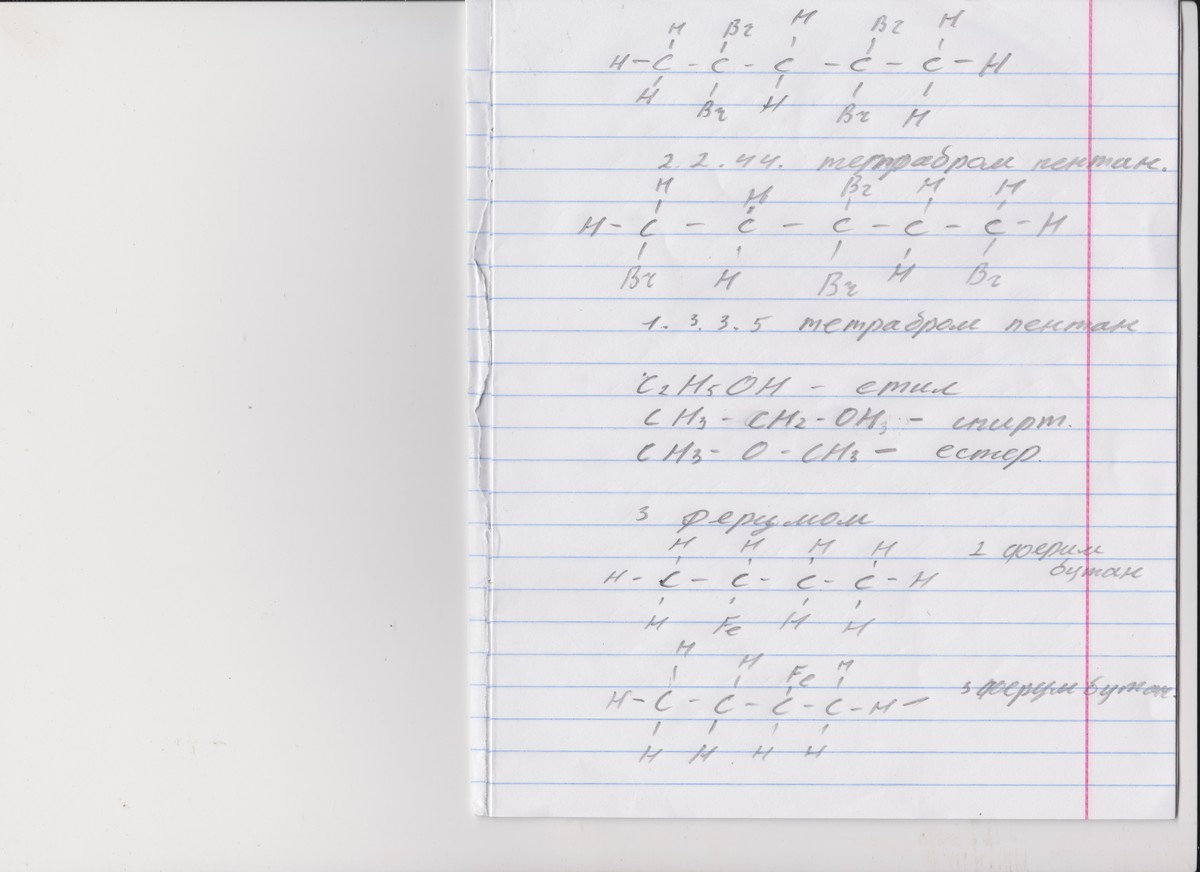 H Br H Br H
H - C - C - C - C - C - H
H Br H Br H
2.2.44. тетрабром пентан.
H H Br H H
H - C - C - C - C - C - H
Br H Br H Br
1.3.3.5 тетрабром пентан
C2H5OH - етил
CH3 - CH2 - OH3 - спирт.
CH3 - O - CH3 - естер.
З ферумом
H H H H 2 ферим
H - C - C - C - C - H бутан
H Fe H H
H H Fe H
H - C - C - C - C - H - 3 ферум бутан.
H H H H